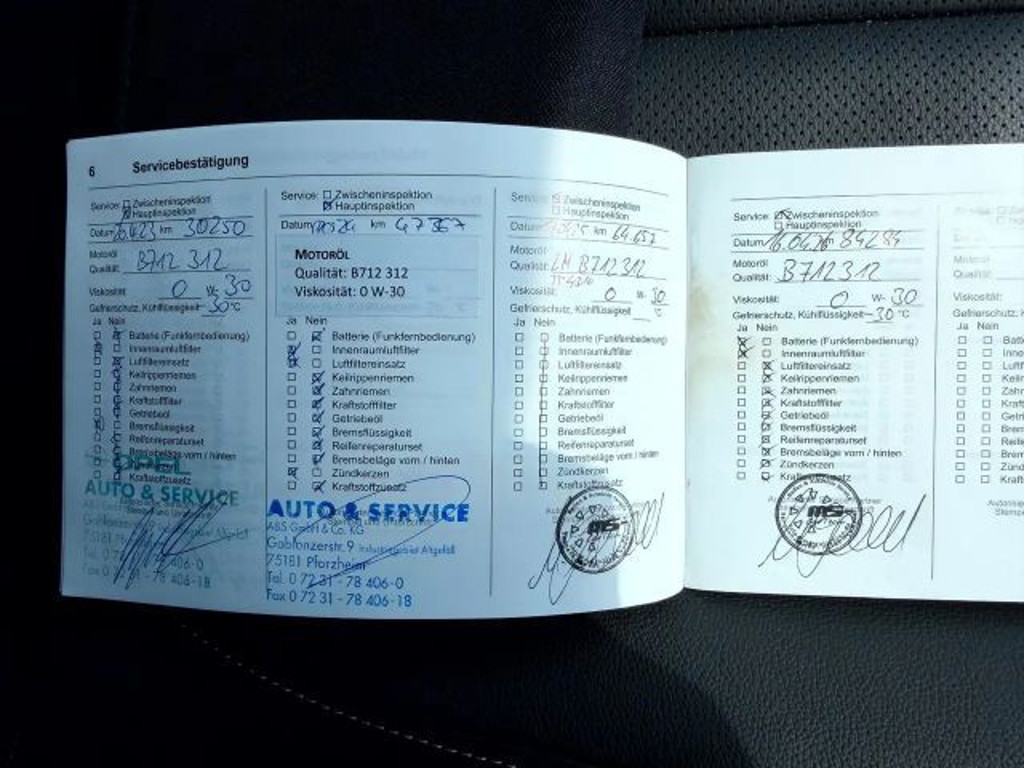 6 Servicebestätigung
Service: Zwischeninspektion
Hauptinspektion
Datum km 30250
Motoröl
Qualität: B712 312
Viskosität: 0 W- 30
Gefrierschutz, Kühlflüssigkeit 30 °C
Ja Nein
Batterie (Funkfernbedienung)
Innenraumluftfilter
Luftfiltereinsatz
Keilrippenriemen
Zahnriemen
Kraftstofffilter
Getriebeöl
Bremsflüssigkeit
Reifenreparaturset
Bremsbeläge vorn / hinten
OPEL
AUTO & SERVICE
Service: Zwischeninspektion
Hauptinspektion
Datum km 47367
MOTORÖL
Qualität: B712 312
Viskosität: 0 W-30
Ja Nein
Batterie (Funkfernbedienung)
Innenraumluftfilter
Luftfiltereinsatz
Keilrippenriemen
Zahnriemen
Kraftstofffilter
Getriebeöl
Bremsflüssigkeit
Reifenreparaturset
Bremsbeläge vorn / hinten
Zündkerzen
Kraftstoffzusatz
AUTO & SERVICE
A&S GmbH & Co. KG
Gablonzerstr. 9 Industriegebiet Altgefäll
75181 Pforzheim
Tel. 0 72 31 - 78 406-0
Fax 0 72 31 - 78 406-18
Service: Zwischeninspektion
Hauptinspektion
Datum km 64657
Motoröl
Qualität: B712312
Viskosität: 0 W- 30
Gefrierschutz, Kühlflüssigkeit °C
Ja Nein
Batterie (Funkfernbedienung)
Innenraumluftfilter
Luftfiltereinsatz
Keilrippenriemen
Zahnriemen
Kraftstofffilter
Getriebeöl
Bremsflüssigkeit
Reifenreparaturset
Bremsbeläge vorn / hinten
Zündkerzen
Kraftstoffzusatz
MS
Service: Zwischeninspektion
Hauptinspektion
Datum 84284
Motoröl
Qualität: B712312
Viskosität: 0 W- 30
Gefrierschutz, Kühlflüssigkeit -30 °C
Ja Nein
Batterie (Funkfernbedienung)
Innenraumluftfilter
Luftfiltereinsatz
Keilrippenriemen
Zahnriemen
Kraftstofffilter
Getriebeöl
Bremsflüssigkeit
Reifenreparaturset
Bremsbeläge vorn / hinten
Zündkerzen
MS
Ja Nein